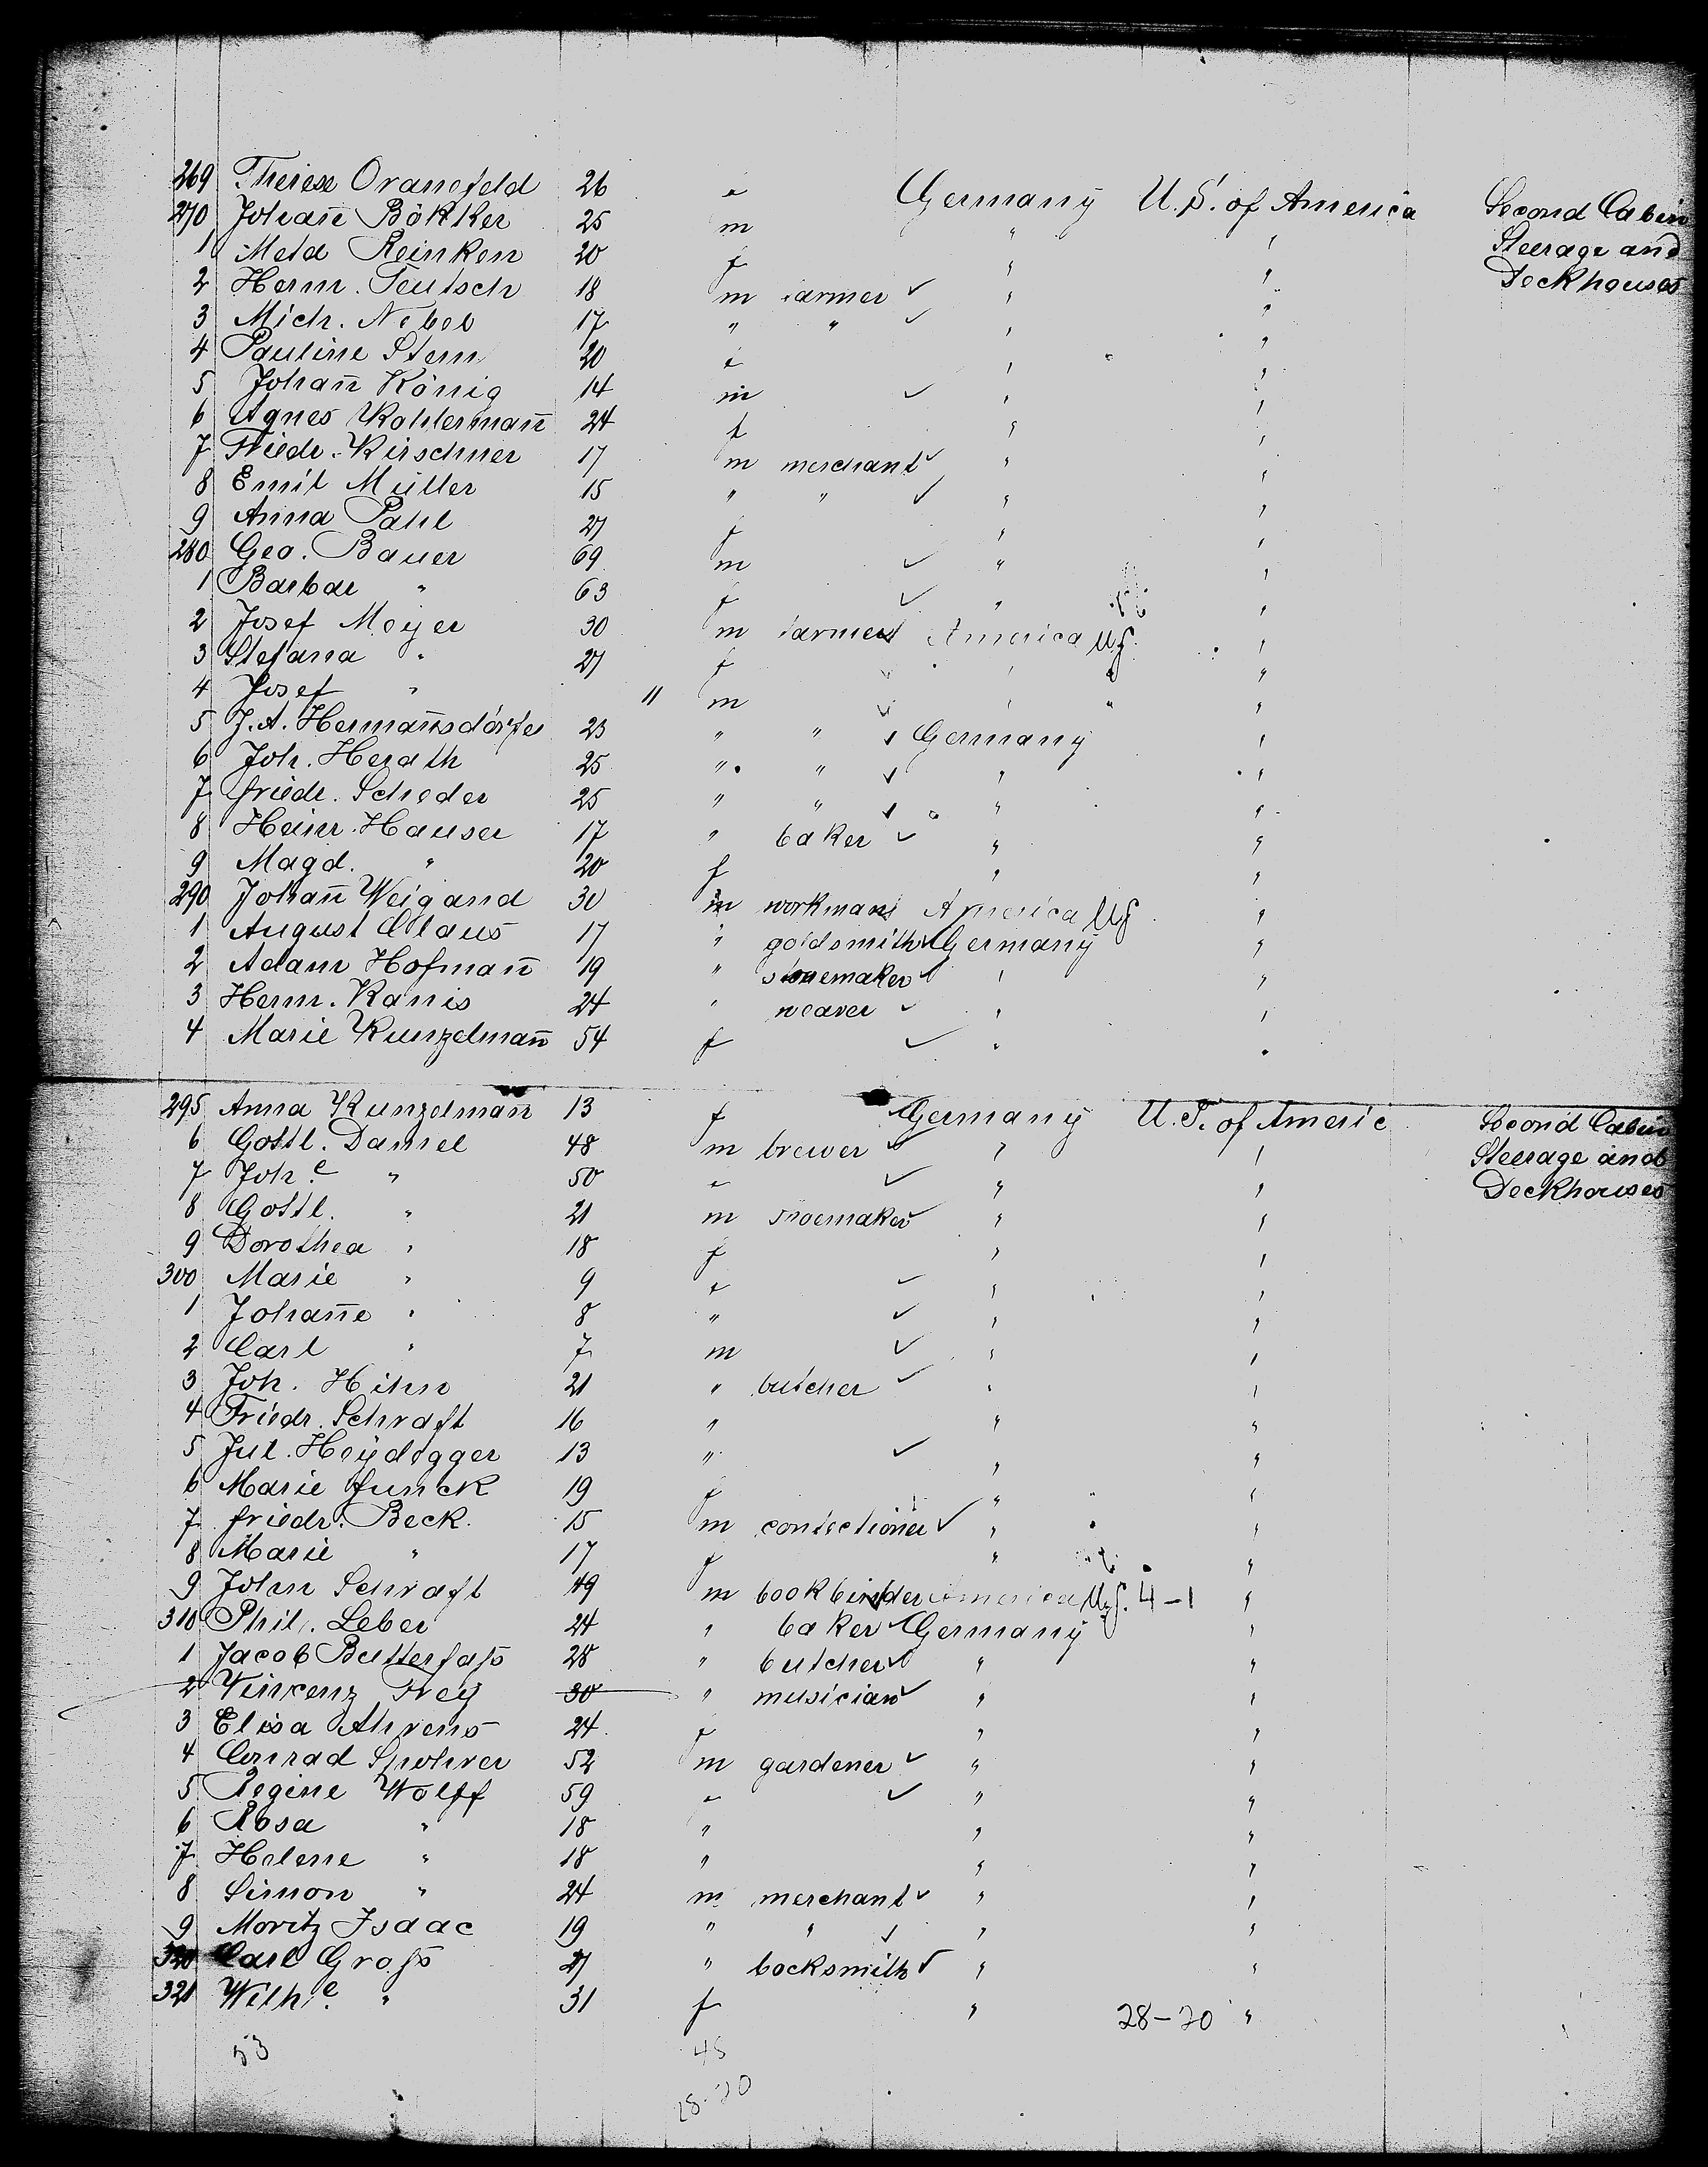 269 Therese Oranefeld 26 f Germany U.S. of America Second Cabin
270 Johan̄ Bökker 25 m " " Steerage and
1 Meta Reinken 20 f " " Deckhouses
2 Herm. Teutsch 18 m farmer " "
3 Mich. Nebel 17 " " " "
4 Pauline Stern 20 f " "
5 Johan̄ König 14 m " "
6 Agnes Kohlerman̄ 24 f " "
7 Friedr. Kirschner 17 m merchant " "
8 Emil Müller 15 " " " "
9 Anna Pahl 27 f " "
280 Geo. Bauer 69 m " "
1 Barbar " 63 f " "
2 Josef Meyer 30 m farmer America US. "
3 Stefana " 27 f " " "
4 Josef " 11 m " " "
5 J. A. Herman̄sdörfer 23 " " Germany "
6 Joh. Herath 25 " " " "
7 Friedr. Scheder 25 " " " "
8 Heinr. Hauser 17 " baker " "
9 Magd. " 20 f " "
290 Johan̄ Weigand 30 m workman America US "
1 August Claus 17 " goldsmith Germany "
2 Adam Hofman̄ 19 " shoemaker " "
3 Herm. Kanis 24 " weaver " "
4 Marie Kunzelman̄ 54 f " "
295 Anna Kunzelman̄ 13 f Germany U.S. of Americ Second Cabin
6 Gottl. Daniel 48 m brewer " " Steerage and
7 Joh.e " 50 f " " Deckhouses
8 Gottl. " 21 m shoemaker " "
9 Dorothea " 18 f " "
300 Marie " 9 f " "
1 Johan̄e " 8 " " "
2 Carl " 7 m " "
3 Joh. Hihn 21 " butcher " "
4 Friedr. Schraft 16 " " "
5 Jul. Heydegger 13 " " "
6 Marie Funck 19 f " "
7 Friedr. Beck 15 m confectioner " "
8 Marie " 17 f " "
9 Johan Schraft 49 m bookbinder America US. 4-1 "
310 Phil. Leber 24 " baker Germany "
1 Jacob Butterfaſs 28 " butcher " "
2 Vinzenz Frey 30 " musician " "
3 Elisa Ahrens 24 f " "
4 Conrad Spohrer 52 m gardener " "
5 Regine Wolff 59 f " "
6 Rosa " 18 " " "
7 Helene " 18 " " "
8 Simon " 24 m merchant " "
9 Moritz Isaac 19 " " " "
320 Carl Groſs 27 " locksmith " "
321 Wilh.e " 31 f " 28-20 "
53 45
28-20